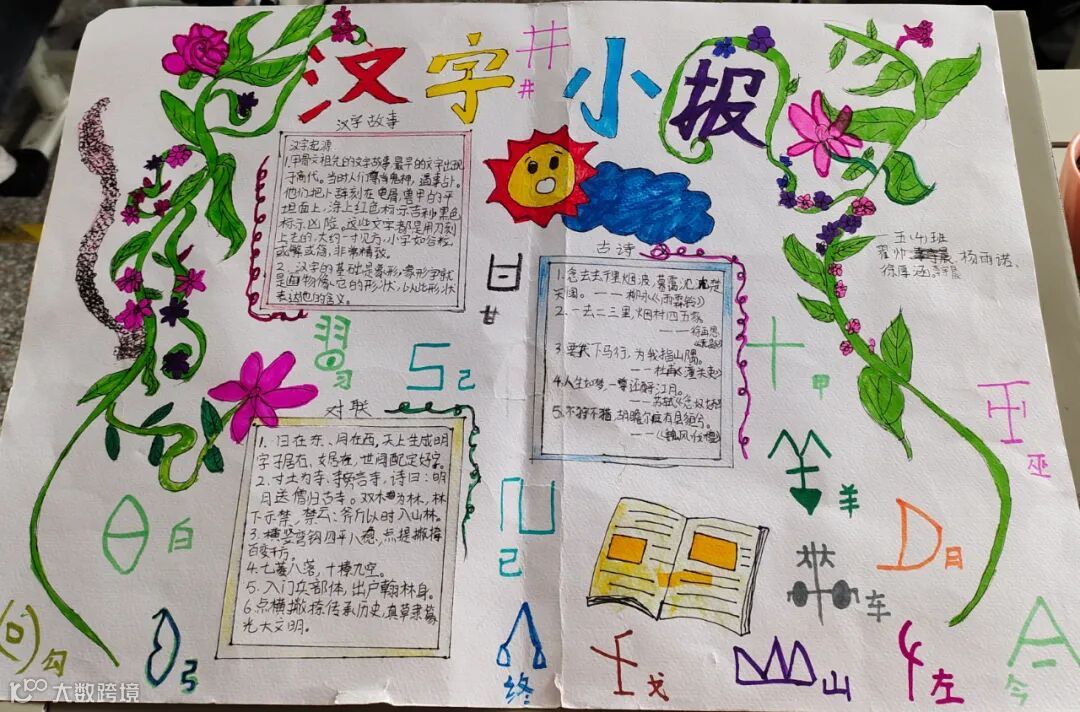 汉字小报
汉字故事
汉字起源
1.甲骨文祖先的文字故事最早的文字出现
于商代。当时人们尊鬼神,遇事占卜。
他们把卜辞刻在龟眉、兽甲的平
坦面上,涂上红色标示吉利,黑色
标示凶险。这些文字都是用刀刻
上去的,大约一寸见方,小字如谷粒,
或繁或简,非常精致。
2、汉字的基础是象形,象形字就
是画物像它的形状,以此形状
表达他的含义。
古诗
1.念去去千里烟波,暮霭沉沉楚
天阔。——柳永《雨霖铃》
2、一去二三里,烟村四五家。
3.要我下马行,为我指山隅。
——杜甫《潼关吏》
4.人生如梦,一尊还酹江月。
5.不狩不猎,胡瞻尔庭有县貆兮。
——《魏风·伐檀》
五(4)班
杨雨诺、
对联
1.日在东、月在西,天上生成明
字,子居右、女居左,世间配定好字。
2、寸土为寺,寺旁言寺,诗曰:明
月送僧归古寺。双木为林,林
下示禁,禁云:斧斤以时入山林。
3.横竖弯钩四平八稳,点提撇捺
4.七菱八落,十榛九空。
5.入门立部体,出户翰林身。
6.点横撇捺传承历史,真草隶篆
光大文明。
井
甘
习
己
甲
巫
羊
白
己
月
车
勾
弓
终
戈
山
左
今
大数跨境